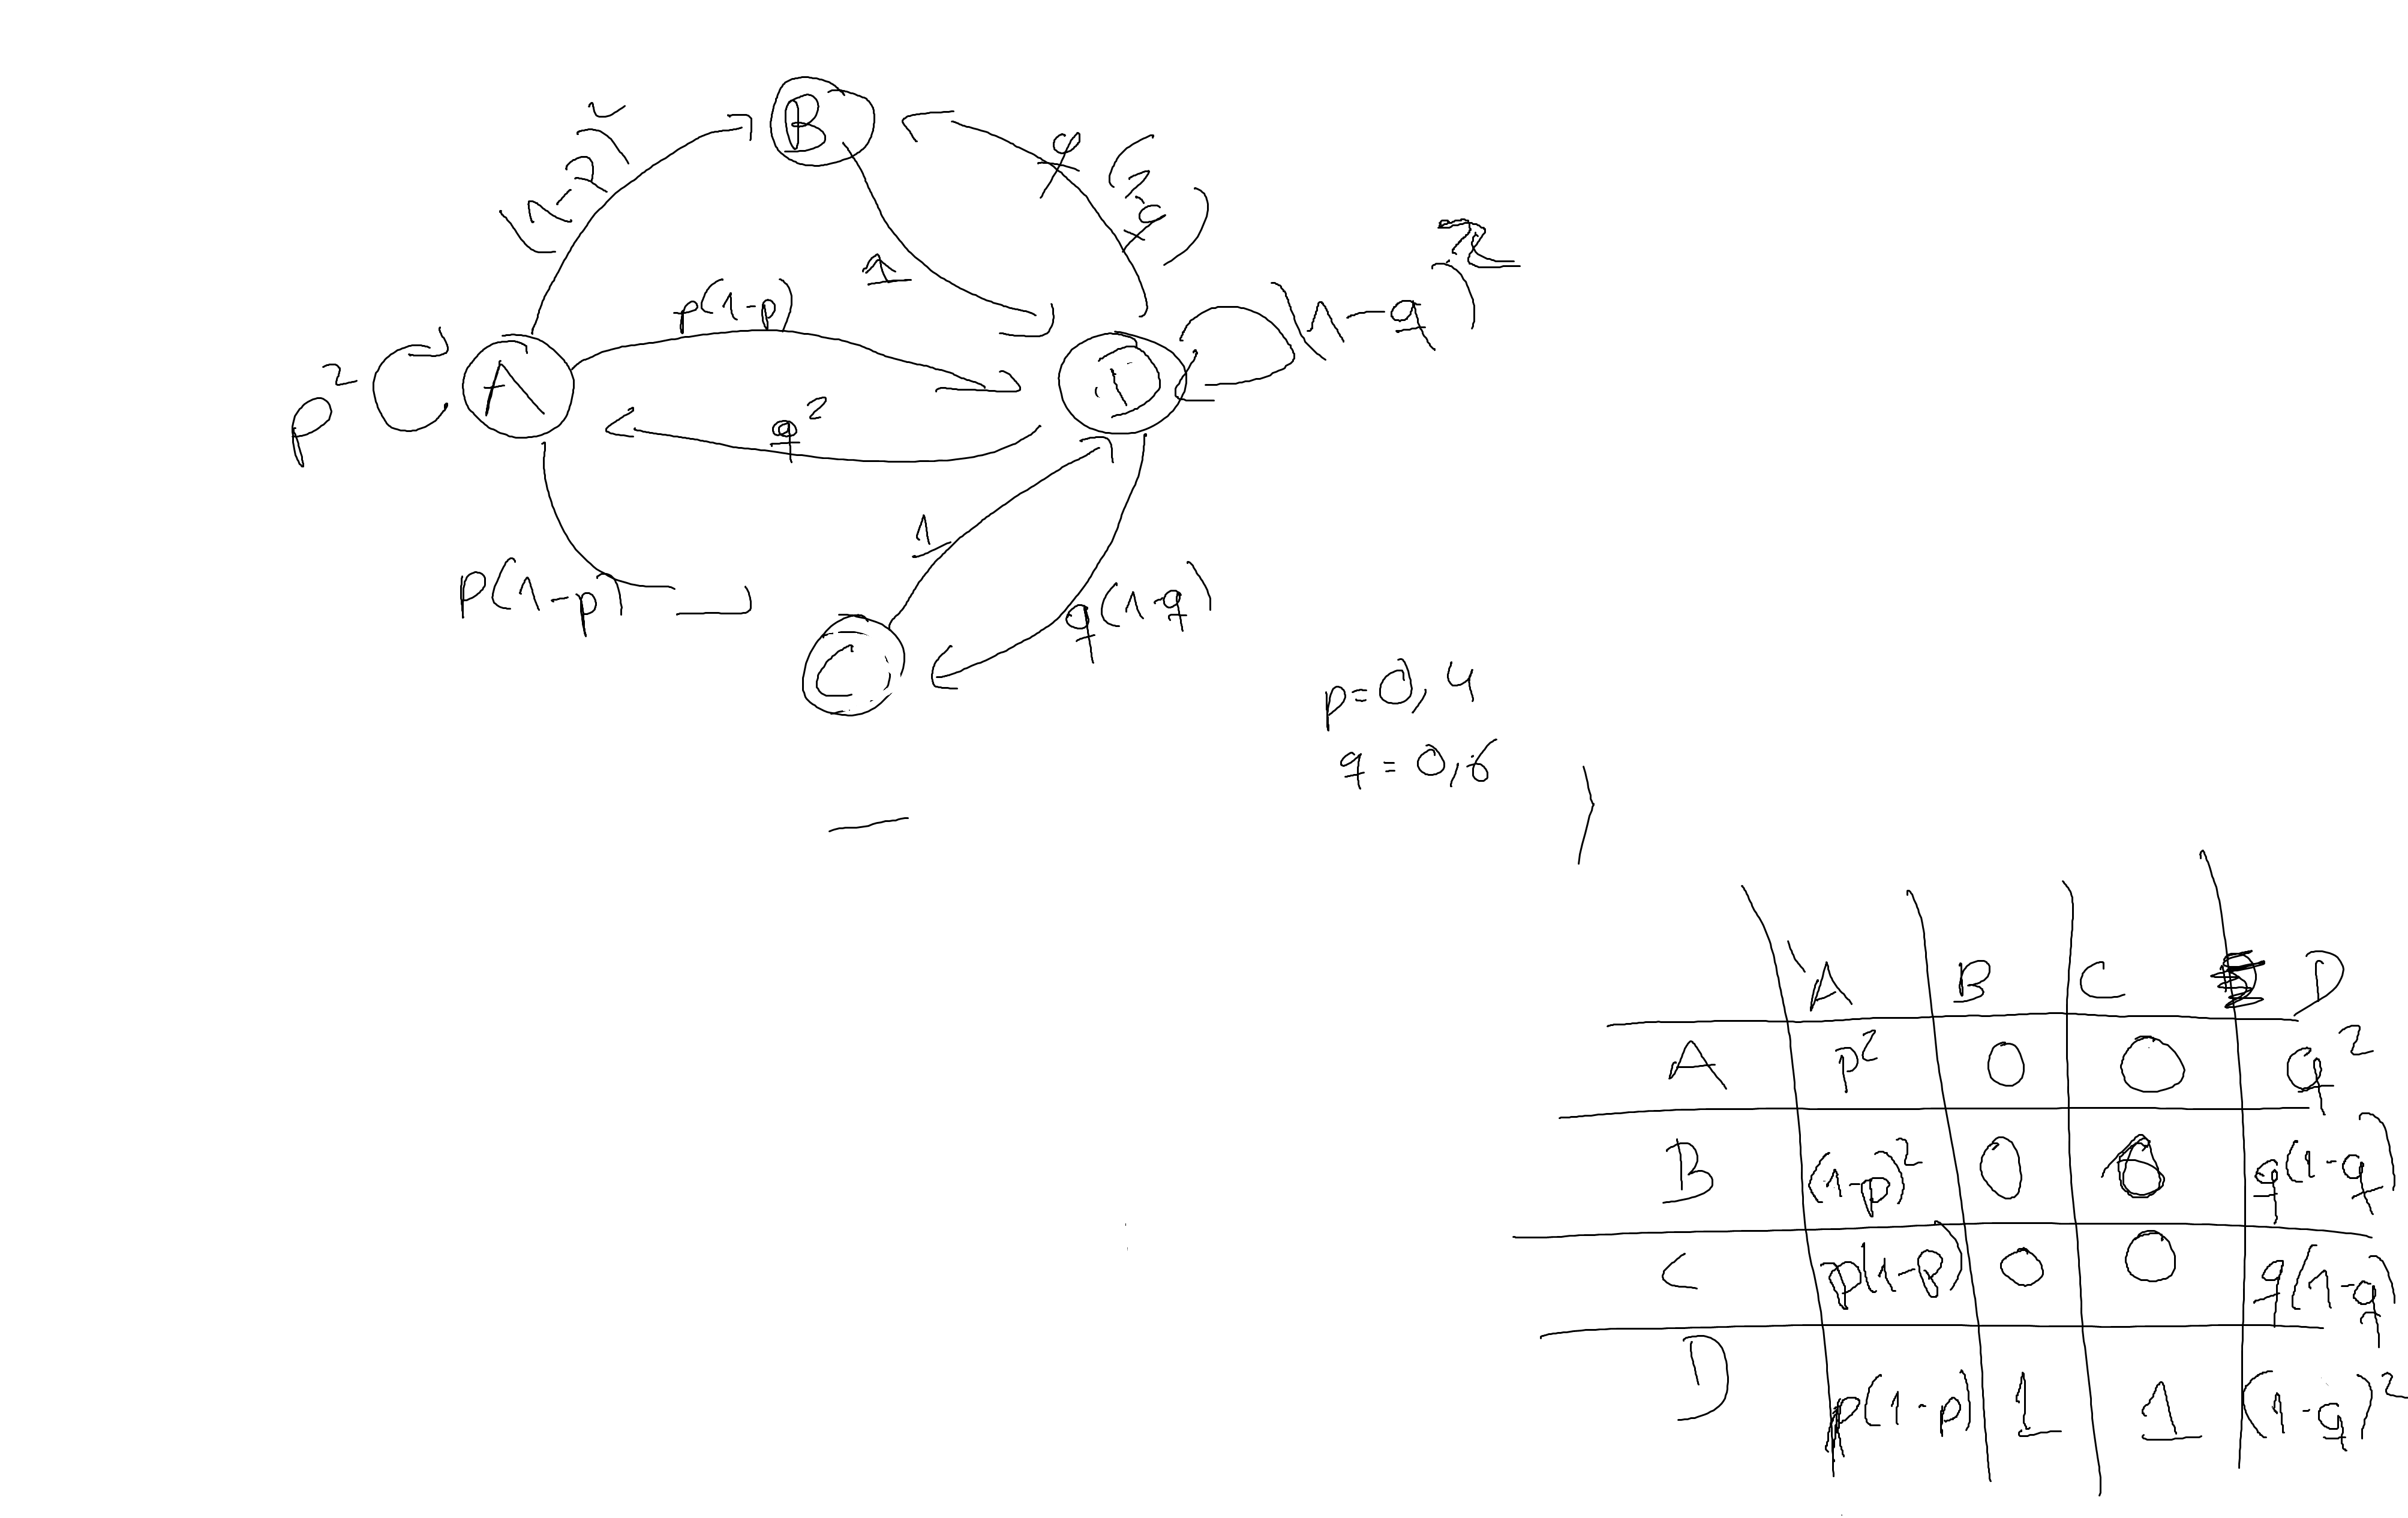 B
(1-p)²
q(1-q)
1
(1-q)²
p(1-p)
p²
A
D
q²
1
p(1-p)
q(1-q)
C
p=0,4
q=0,6
A B C D
A p² 0 0 q²
B (1-p)² 0 0 q(1-q)
C p(1-p) 0 0 q(1-q)
D p(1-p) 1 1 (1-q)²